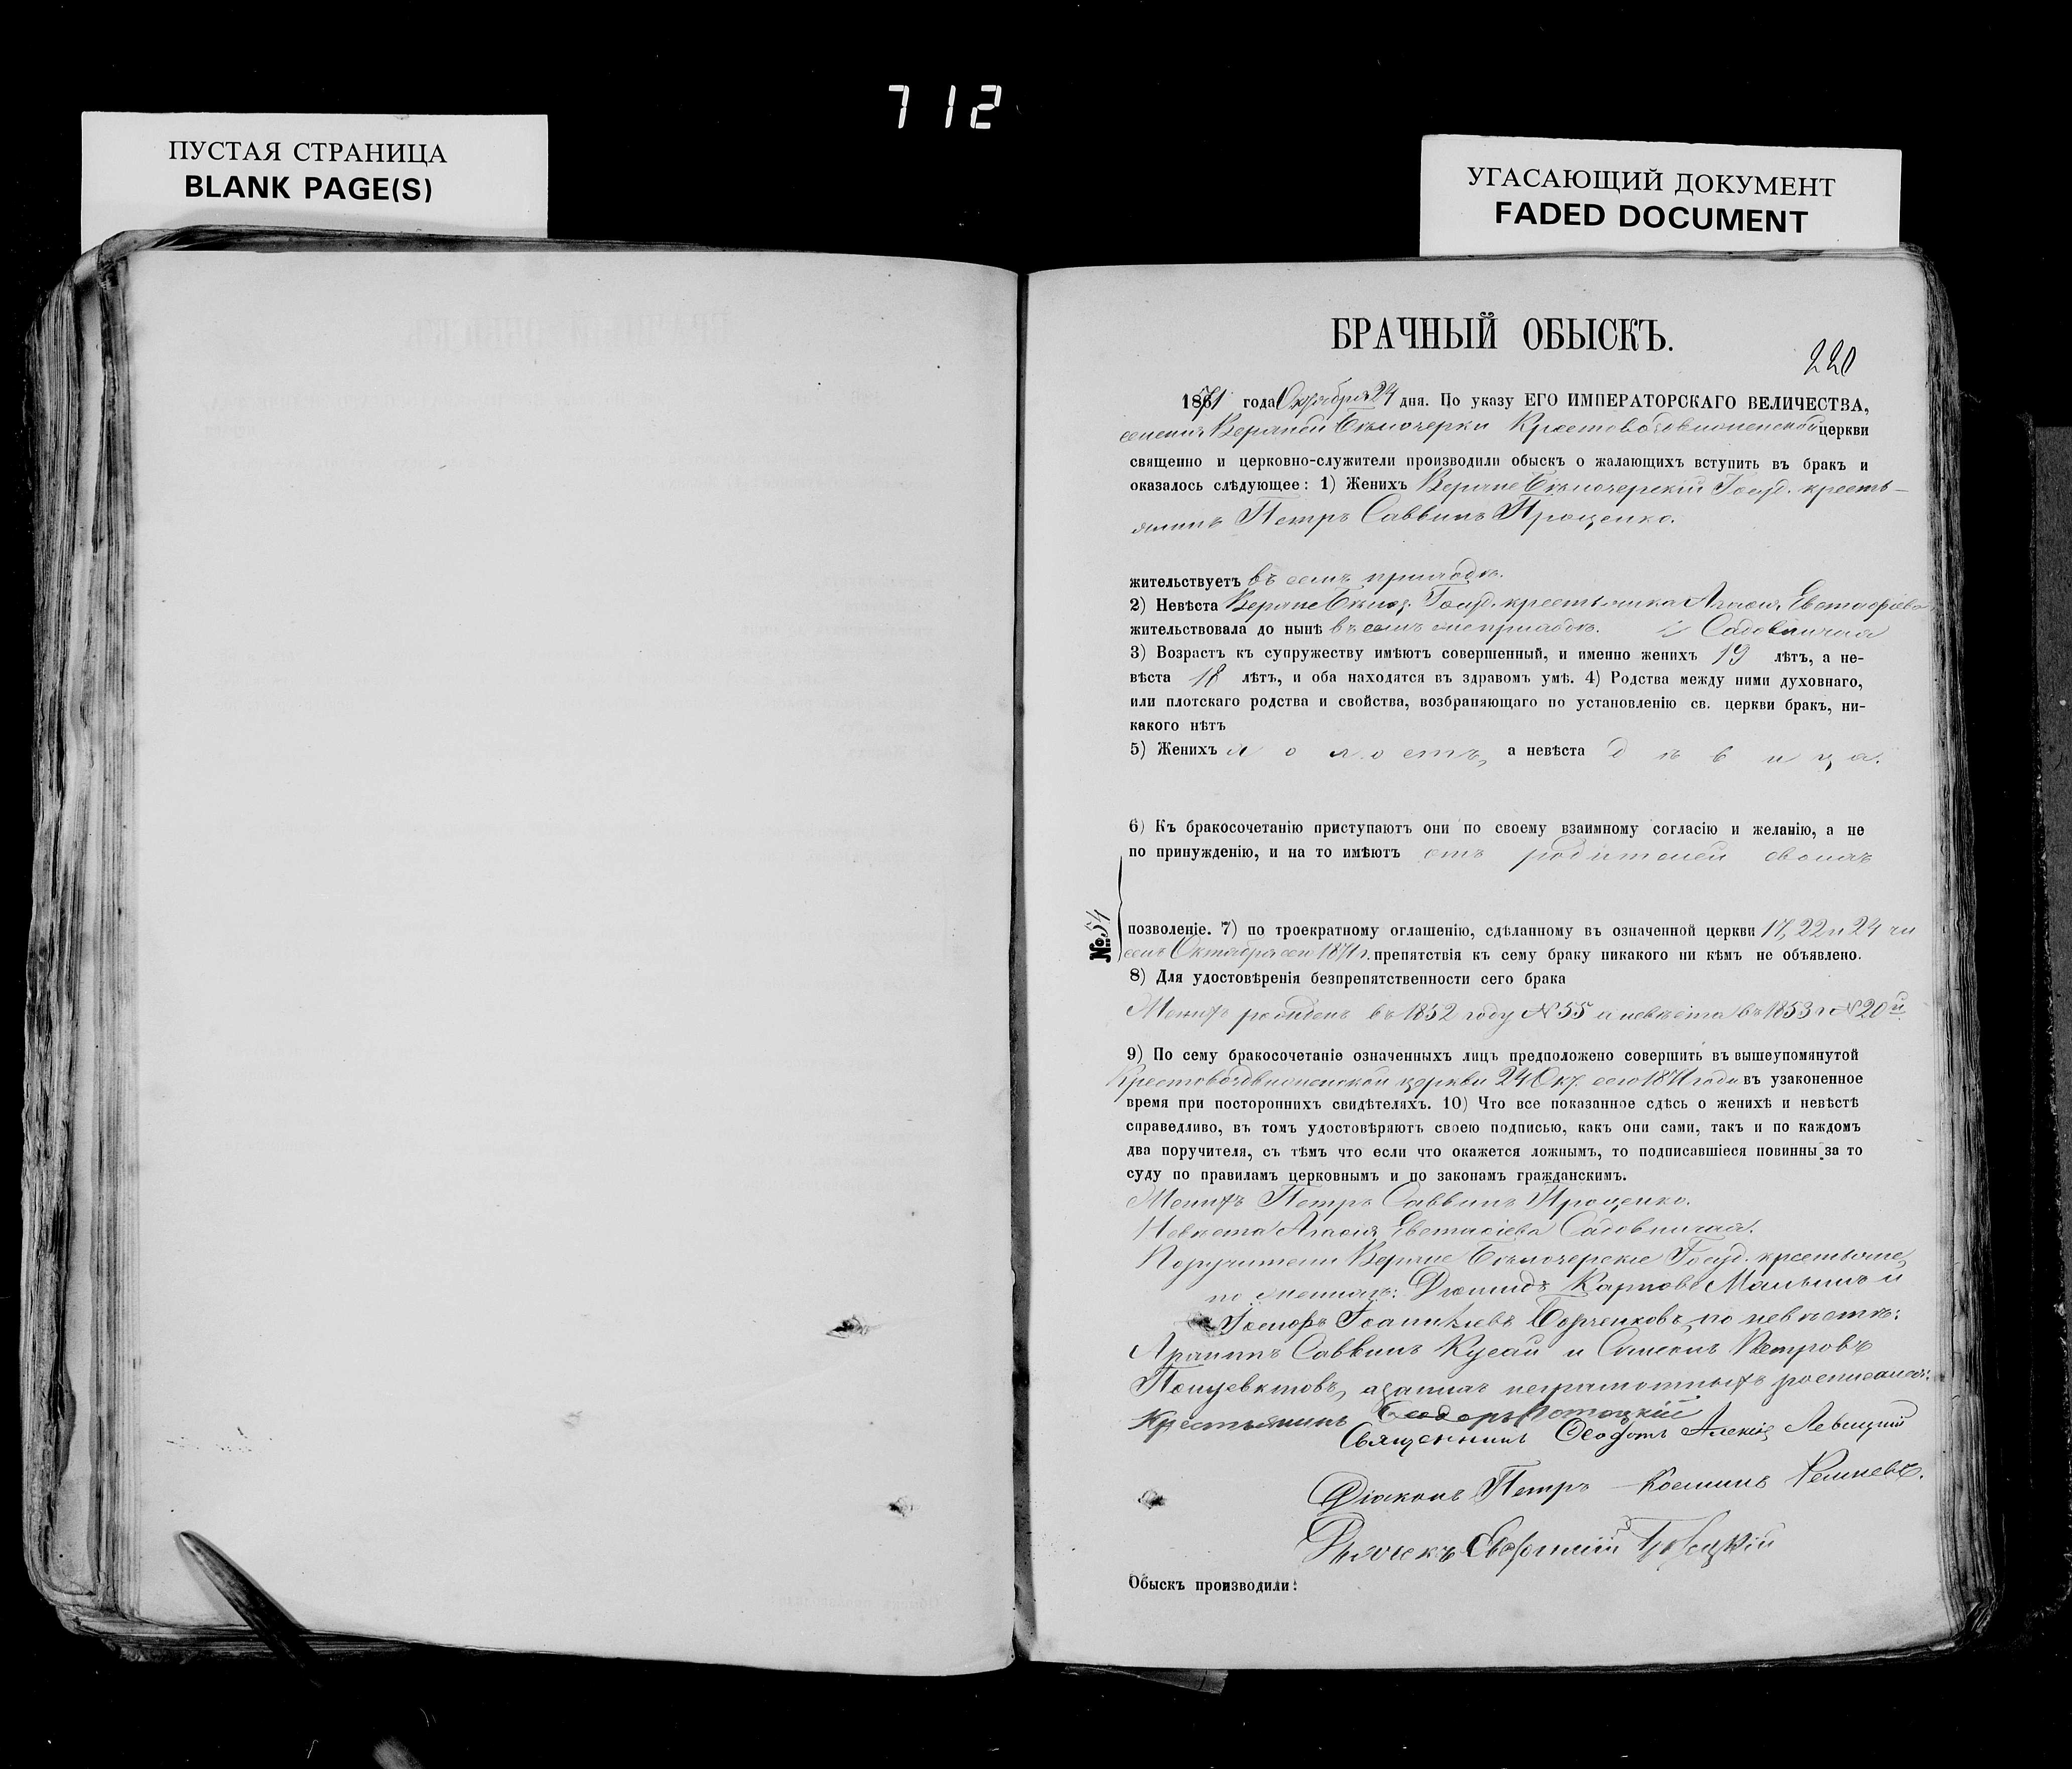 712
ПУСТАЯ СТРАНИЦА
BLANK PAGE(S)
УГАСАЮЩИЙ ДОКУМЕНТ
FADED DOCUMENT
БРАЧНЫЙ ОБЫСКЪ.
220
1871 года Октября 24 дня. По указу ЕГО ИМПЕРАТОРСКАГО ВЕЛИЧЕСТВА,
церкви
священно и церковно-служители производили обыскъ о жалающихъ вступить въ бракъ и
оказалось слѣдующее: 1) Женихъ Верхне Бѣлозерскій Госуд. кресть-
янинъ Петръ Саввинъ Проценко.
жительствуетъ въ семъ приходѣ.
2) Невѣста Верхне Бѣлоз. Госуд. крестьянка Агафія Евстафіева
жительствовала до нынѣ въ семъ же приходѣ. Садовничая
3) Возрастъ къ супружеству имѣютъ совершенный, и именно женихъ 19 лѣтъ, а не-
вѣста 18 лѣтъ, и оба находятся въ здравомъ умѣ. 4) Родства между ними духовнаго,
или плотскаго родства и свойства, возбраняющаго по установленію св. церкви бракъ, ни-
какого нѣтъ
5) Женихъ холостъ, а невѣста дѣвица.
6) Къ бракосочетанію приступаютъ они по своему взаимному согласію и желанію, а не
по принужденію, и на то имѣютъ отъ родителей своихъ
№ 54
позволеніе. 7) по троекратному оглашенію, сдѣланному въ означенной церкви 17, 22 и 24 чи
селъ Октября сего 1871 г. препятствія къ сему браку никакого ни кѣмъ не объявлено.
8) Для удостовѣренія безпрепятственности сего брака
Женихъ рожденъ въ 1852 году № 55 и невѣста въ 1853 г № 20й
9) По сему бракосочетаніе означенныхъ лицъ предположено совершить въ вышеупомянутой
Крестовоздвиженской церкви 24 Окт. сего 1871 года въ узаконенное
время при постороннихъ свидѣтеляхъ. 10) Что все показанное сдѣсь о женихѣ и невѣстѣ
справедливо, въ томъ удостовѣряютъ своею подписью, какъ они сами, такъ и по каждомъ
два поручителя, съ тѣмъ что если что окажется ложнымъ, то подписавшіеся повинны за то
суду по правиламъ церковнымъ и по законамъ гражданскимъ.
Женихъ Петръ Саввинъ Проценко.
Невѣста Агафія Евстафіева Садовничая.
Поручители Верхне Бѣлозерскіе Госуд. крестьяне,
по женихѣ: Карповъ и
Іосифъ по невѣстѣ:
Саввинъ и Петровъ
неграмотныхъ росписался:
Крестьянинъ Ѳеодоръ
Священникъ Ѳеодотъ Левицкій
Діаконъ Петръ Косминъ
Дьячекъ
Обыскъ производили: